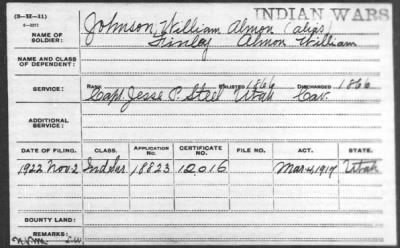 (3-SE-11)
INDIAN WARS
NAME OF SOLDIER: Johnson, William Almon (alias)
Finley Almon William
NAME AND CLASS OF DEPENDENT:
SERVICE: RANK ENLISTED 1866 DISCHARGED 1866
Capt. Jesse P. Steel Utah Cav.
ADDITIONAL SERVICE:
DATE OF FILING. CLASS. APPLICATION NO. CERTIFICATE NO. FILE NO. ACT. STATE.
1922 Nov 2 Ind Sur 18823 12016 Mar 4, 1917 Utah
BOUNTY LAND:
REMARKS: